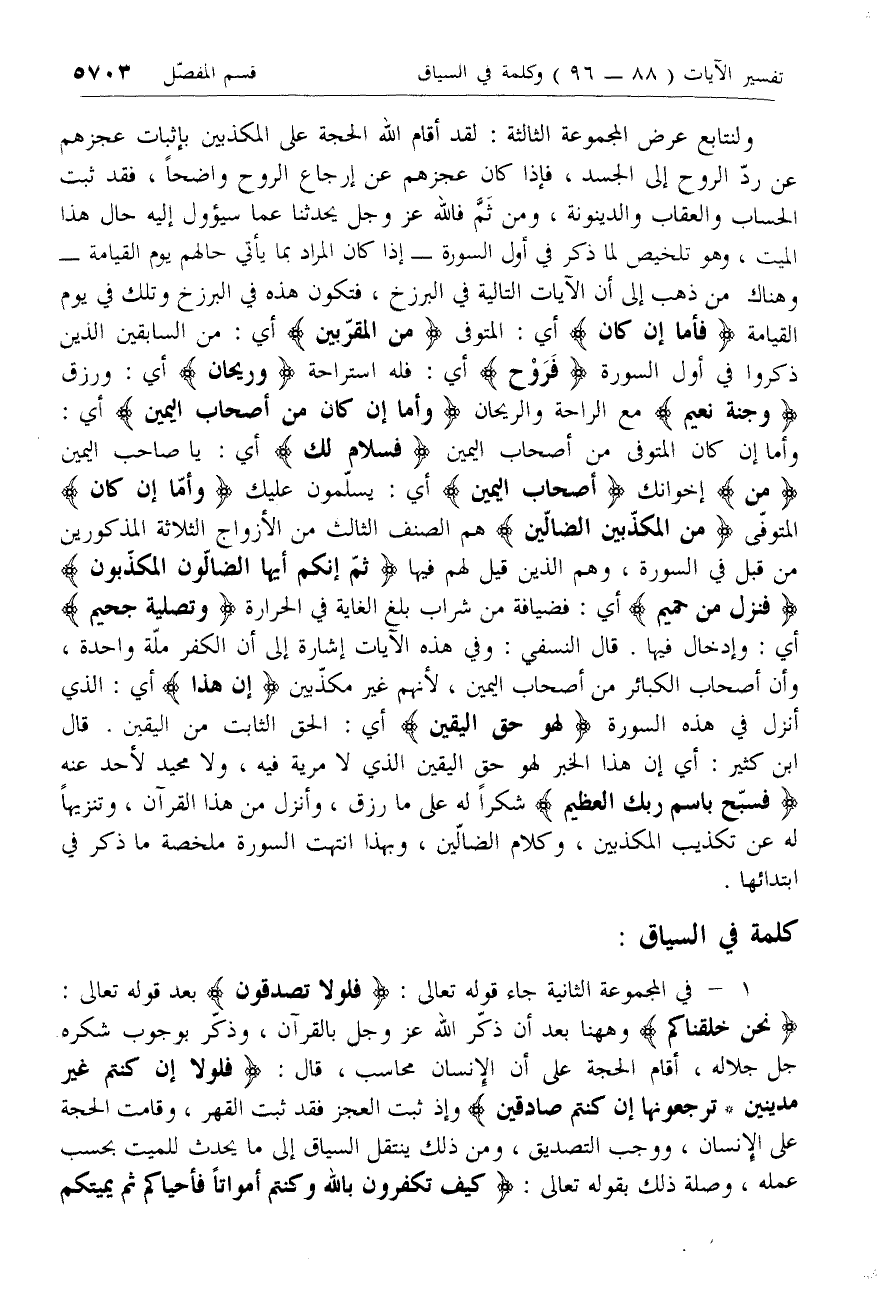 تفسير الآيات ( ٨٨ — ٩٦ ) وكلمة في السياق قسم المفصّل ٥٧٠٣
ولنتابع عرض المجموعة الثالثة : لقد أقام الله الحجة على المكذبين بإثبات عجزهم
عن ردّ الروح إلى الجسد ، فإذا كان عجزهم عن إرجاع الروح واضحاً ، فقد ثبت
الحساب والعقاب والدينونة ، ومن ثَمَّ فالله عز وجل يحدثنا عما سيؤول إليه حال هذا
الميت ، وهو تلخيص لما ذكر في أول السورة — إذا كان المراد بما يأتي حالهم يوم القيامة —
وهناك من ذهب إلى أن الآيات التالية في البرزخ ، فتكون هذه في البرزخ وتلك في يوم
القيامة ﴿ فأما إن كان ﴾ أي : المتوفى ﴿ من المقرّبين ﴾ أي : من السابقين الذين
ذكروا في أول السورة ﴿ فَرَوْح ﴾ أي : فله استراحة ﴿ وريحان ﴾ أي : ورزق
﴿ وجنة نعيم ﴾ مع الراحة والريحان ﴿ وأما إن كان من أصحاب اليمين ﴾ أي :
وأما إن كان المتوفى من أصحاب اليمين ﴿ فسلام لك ﴾ أي : يا صاحب اليمين
﴿ من ﴾ إخوانك ﴿ أصحاب اليمين ﴾ أي : يسلّمون عليك ﴿ وأمّا إن كان ﴾
المتوفّى ﴿ من المكذّبين الضالّين ﴾ هم الصنف الثالث من الأزواج الثلاثة المذكورين
من قبل في السورة ، وهم الذين قيل لهم فيها ﴿ ثمّ إنكم أيها الضالّون المكذّبون ﴾
﴿ فنزل من حميم ﴾ أي : فضيافة من شراب بلغ الغاية في الحرارة ﴿ وتصلية جحيم ﴾
أي : وإدخال فيها . قال النسفي : وفي هذه الآيات إشارة إلى أن الكفر ملّة واحدة ،
وأن أصحاب الكبائر من أصحاب اليمين ، لأنهم غير مكذّبين ﴿ إن هذا ﴾ أي : الذي
أنزل في هذه السورة ﴿ لهو حق اليقين ﴾ أي : الحق الثابت من اليقين . قال
ابن كثير : أي إن هذا الخبر لهو حق اليقين الذي لا مرية فيه ، ولا محيد لأحد عنه
﴿ فسبّح باسم ربك العظيم ﴾ شكراً له على ما رزق ، وأنزل من هذا القرآن ، وتنزيهاً
له عن تكذيب المكذبين ، وكلام الضالّين ، وبهذا انتهت السورة ملخصة ما ذكر في
ابتدائها .
كلمة في السياق :
١ – في المجموعة الثانية جاء قوله تعالى : ﴿ فلولا تصدقون ﴾ بعد قوله تعالى :
﴿ نحن خلقناكم ﴾ وههنا بعد أن ذكّر الله عز وجل بالقرآن ، وذكّر بوجوب شكره
جل جلاله ، أقام الحجة على أن الإنسان محاسب ، قال : ﴿ فلولا إن كنتم غير
مدينين * ترجعونها إن كنتم صادقين ﴾ وإذ ثبت العجز فقد ثبت القهر ، وقامت الحجة
على الإنسان ، ووجب التصديق ، ومن ذلك ينتقل السياق إلى ما يحدث للميت بحسب
عمله ، وصلة ذلك بقوله تعالى : ﴿ كيف تكفرون بالله وكنتم أمواتاً فأحياكم ثم يميتكم